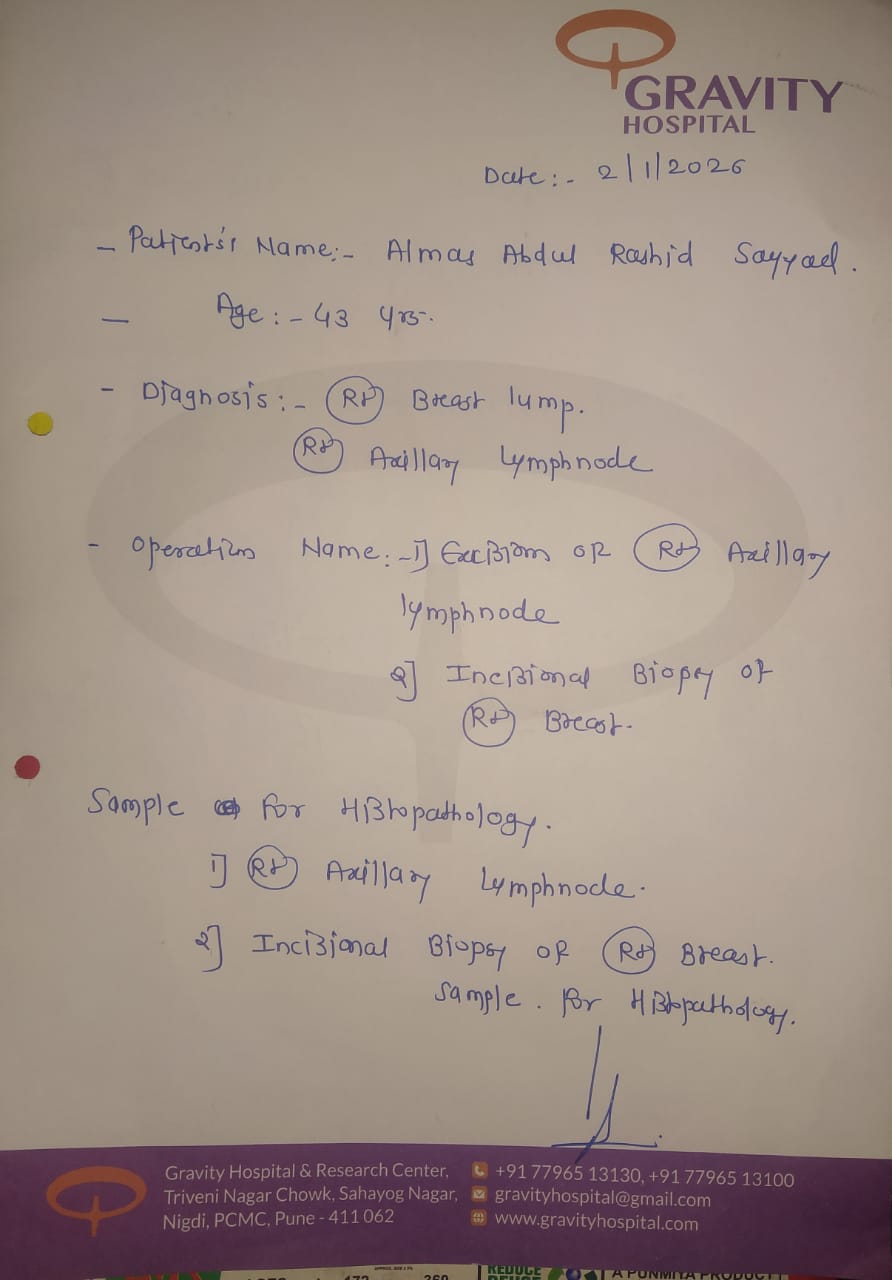 GRAVITY
HOSPITAL
Date:- 2/1/2026
- Patients's Name:- Almas Abdul Rashid Sayyad.
- Age:- 43 yrs.
- Diagnosis:- Rt Breast lump.
Rt Axillary Lymphnode
- Operation Name:- 1] Excision of Rt Axillary
lymphnode
2] Incisional Biopsy of
Rt Breast.
Sample for Histopathology.
1] Rt Axillary Lymphnode.
2] Incisional Biopsy of Rt Breast.
Sample. for Histopathology.
Gravity Hospital & Research Center,
Triveni Nagar Chowk, Sahayog Nagar,
Nigdi, PCMC, Pune - 411 062
+91 77965 13130, +91 77965 13100
gravityhospital@gmail.com
www.gravityhospital.com
REDUCE